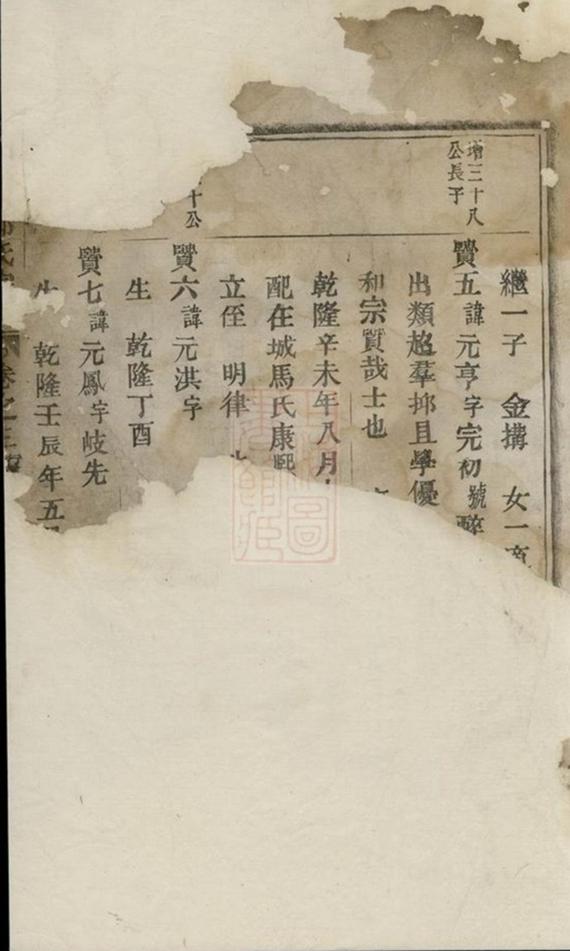 繼一子　金搆　女一
增三十八
公長子
贒五諱元亨字完初號
出類越羣抑且學優
和宗贒哉士也
乾隆辛未年八月
配在城馬氏康熙
立侄　明律
十公
贒六諱元洪字
生　乾隆丁酉
贒七諱元鳳字岐先
生　乾隆壬辰年五
氏
卷之三